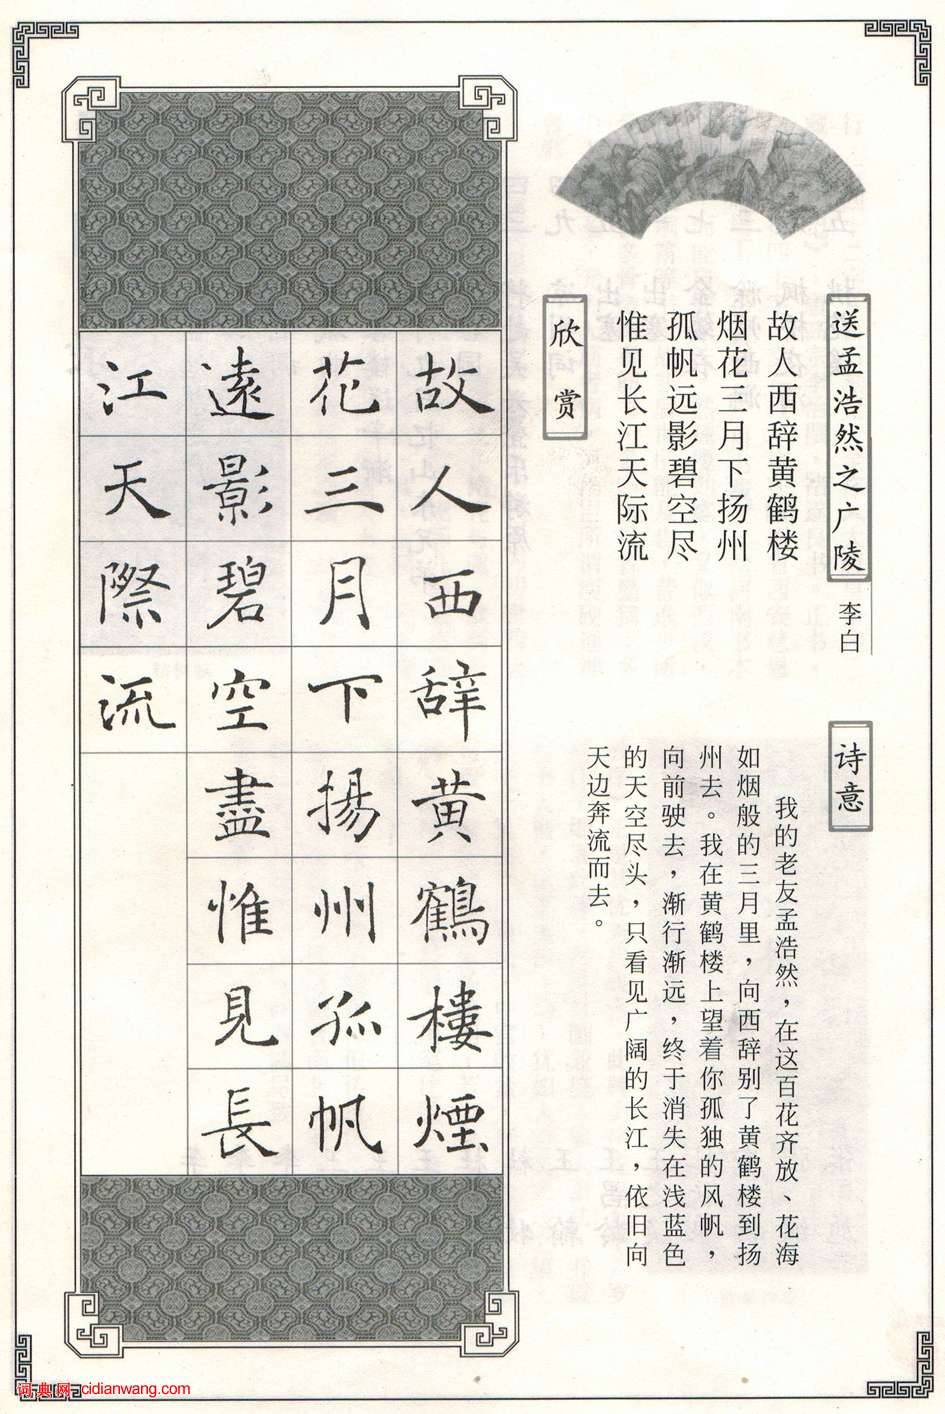 送孟浩然之广陵
李白
故人西辞黄鹤楼
烟花三月下扬州
孤帆远影碧空尽
惟见长江天际流
诗意
我的老友孟浩然，在这百花齐放、花海
如烟般的三月里，向西辞别了黄鹤楼到扬
州去。我在黄鹤楼上望着你孤独的风帆，
向前驶去，渐行渐远，终于消失在浅蓝色
的天空尽头，只看见广阔的长江，依旧向
天边奔流而去。
欣赏
故人西辞黄鶴樓煙
花三月下揚州孤帆
遠影碧空盡惟見長
江天際流
词典网 cidianwang.com